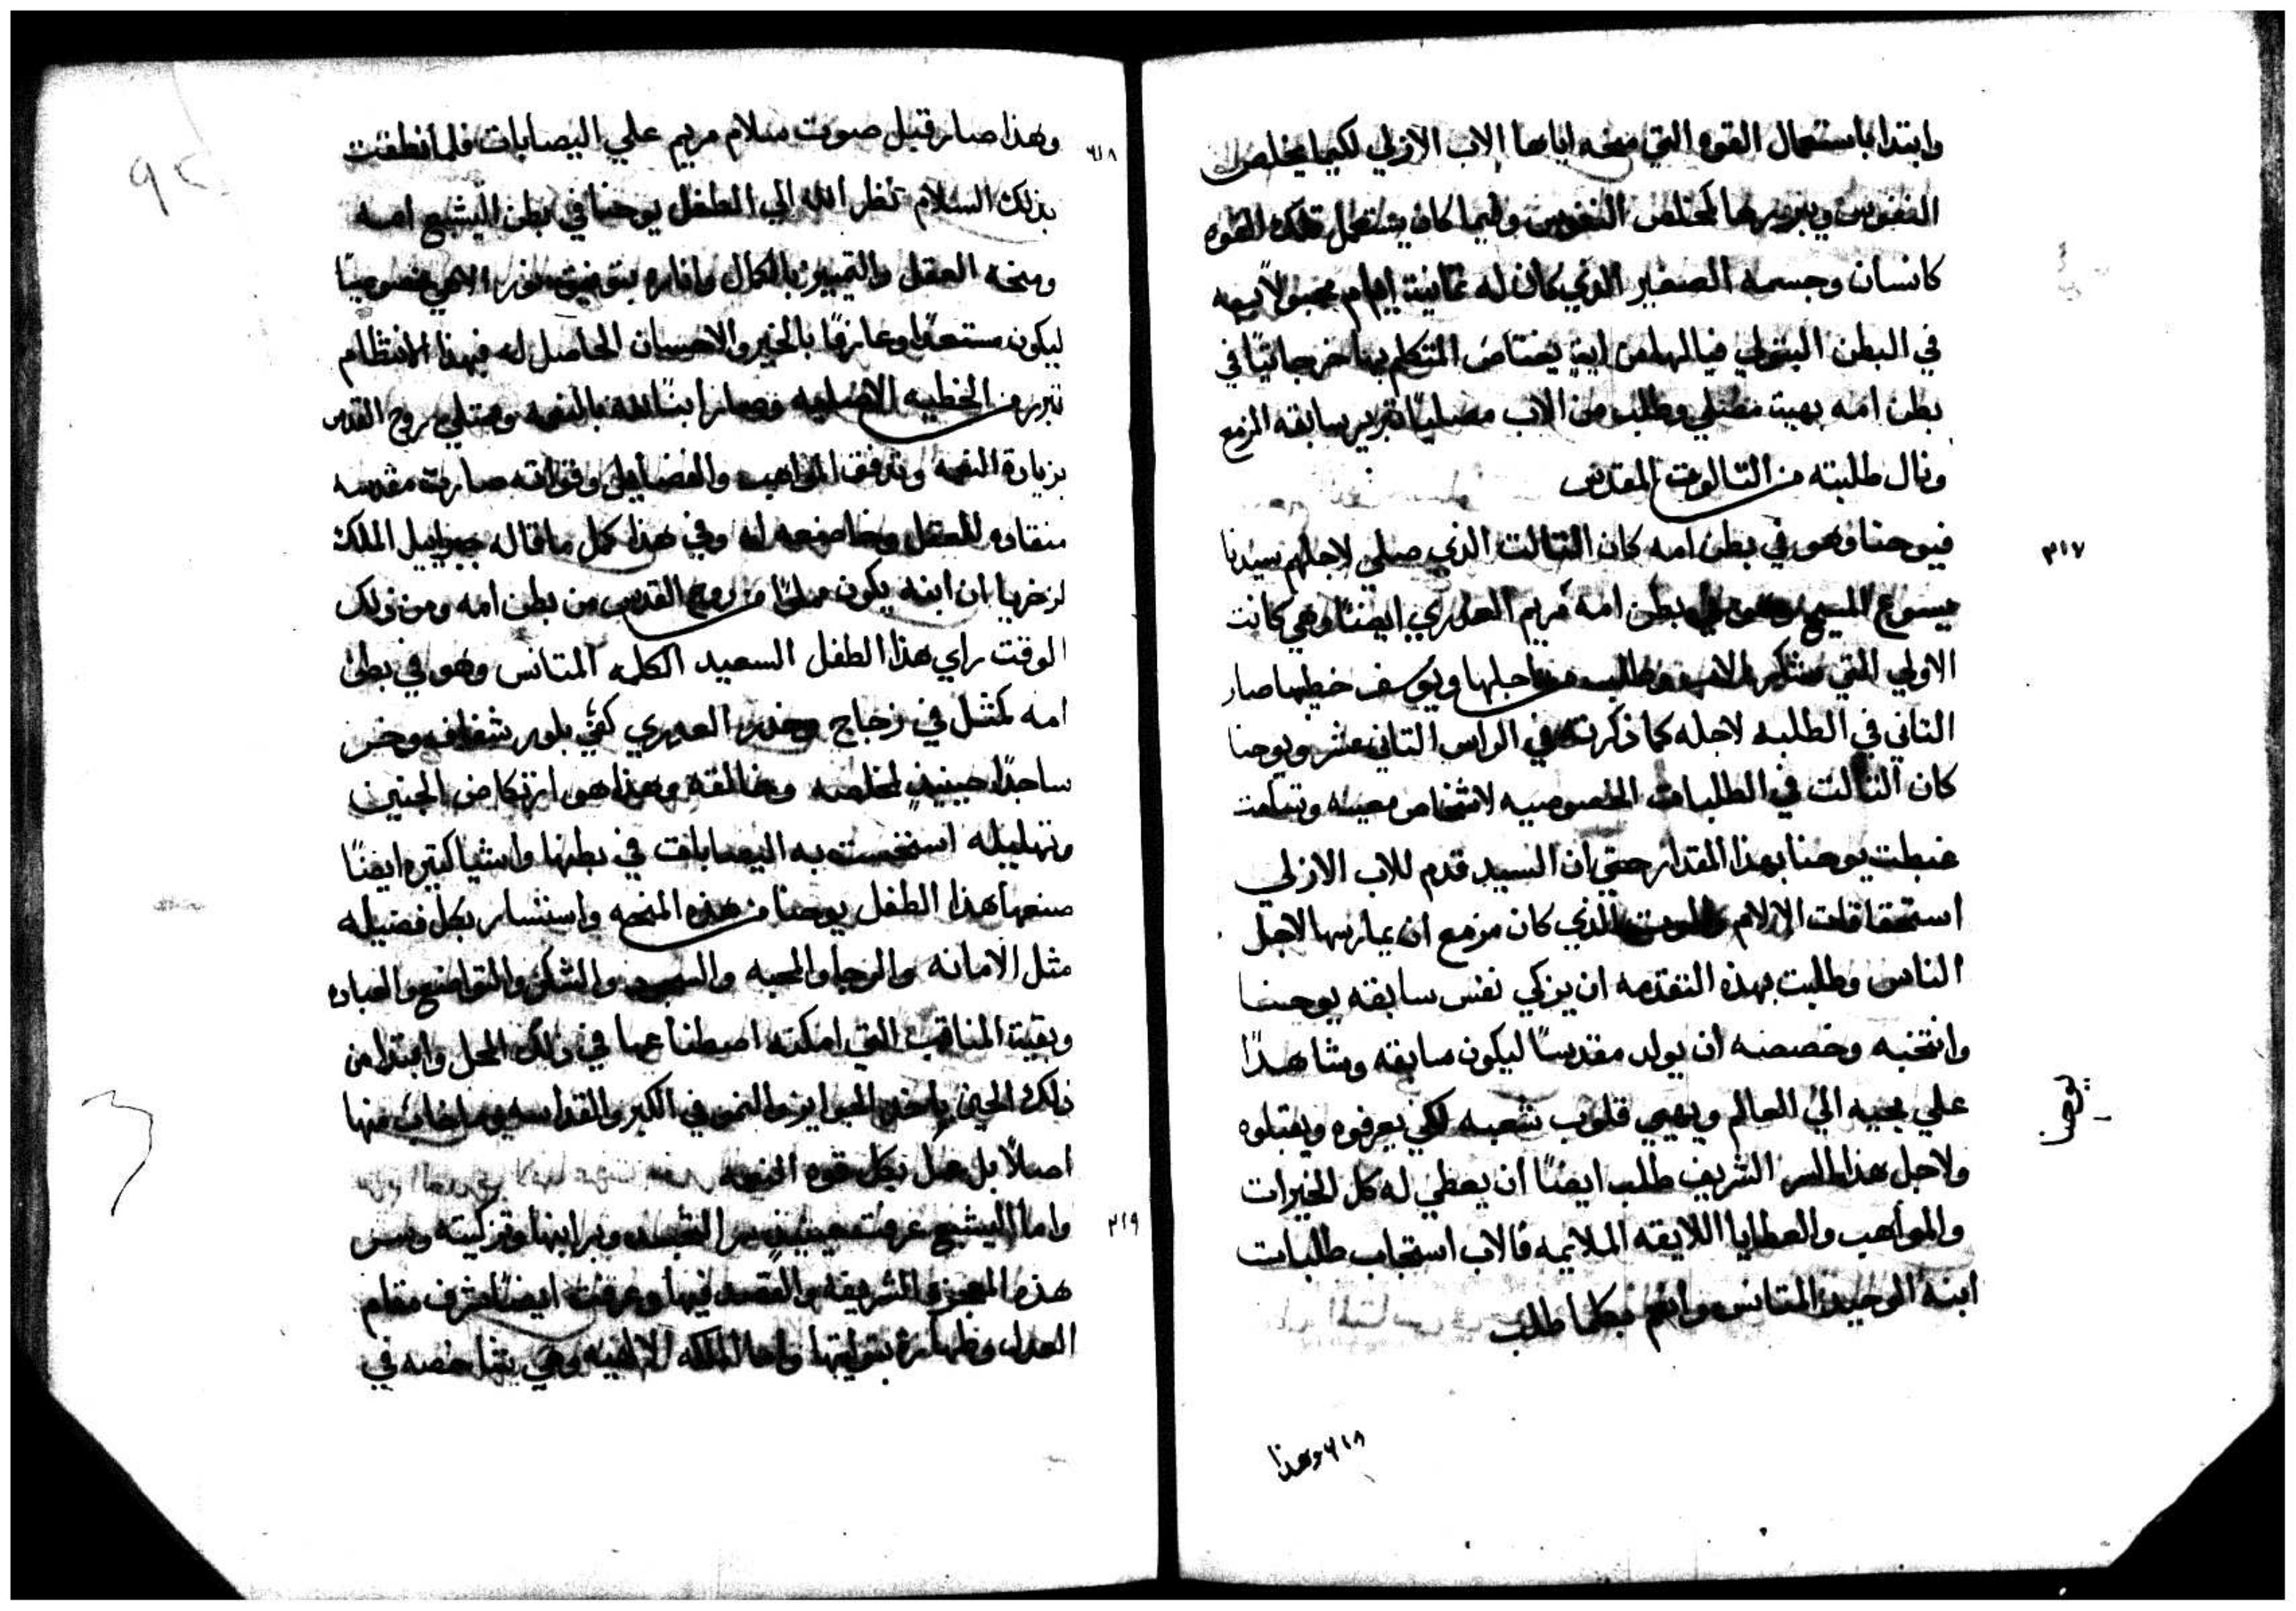 وابتدا باستعمال القوه التي منحه اياها الاب الازلي لكيما يخلص
النفوس ويبررها كمخلص النفوس وفيما كان يستعمل تلك القوه
كانسان وجسمه الصغير الذي كان له ثمانية ايام محبولا به
في البطن البتولي فيا لها من
بطن امه بهية مصلي وطلب من الاب مصليا تبرير سابقه المزمع
ونال طلبته من التالوت المقدس
٢١٧
فيوحنا وهو في بطن امه كان التالت الذي صلي لاجلهم سيدنا
يسوع المسيح وهو في بطن امه مريم العدري ايضا وهي كانت
الاولي التي شكر الاب وطلب من اجلها ويوسف خطيبها صار
التاني في الطلبه لاجله كما ذكرنا في الراس التاني عشر ويوحنا
كان التالت في الطلبات الخصوصيه لاشخاص معينه
غبطت يوحنا بهذا المقدار حتي ان السيد قدم للاب الازلي
استحقاقات الالام والموت الذي كان مزمع ان يمارسها لاجل
الناس وطلبت بهذه التقدمه ان يزكي نفس سابقه يوحنا
وانتخبه وخصصه ان يولد مقدسا ليكون سابقه وشاهدا
علي مجيه الي العالم ويهيي قلوب شعبه لكي يعرفوه ويقبلوه
ولاجل هذا السر الشريف طلب ايضا ان يعطي له كل الخيرات
والمواهب والعطايا اللايقه الملايمه فالاب استجاب طلبات
ابنه الوحيد المتانس وانعم بكلما طلب
٢١٨ وهذا
٢١٨
وهذا صار قبل صوت سلام مريم علي اليصابات فلما نطقت
بذلك السلام نظر الله الي الطفل يوحنا في بطن اليشبع امه
ومنحه العقل والتمييز بالكمال واناره بتوفيق نور الاهي خصوصيا
ليكون مستعدا وعارفا بالخير والاحسان الحاصل له فبهذا الانتظام
تبرر من الخطيه الاصليه وصار ابنا لله بالنعمه وممتلي روح القدس
بزيادة النعمه وتدفق المواهب والفضايل وقواته صارت مقدسه
منقاده للعقل وخاضعه له وفي هذا كمل ما قاله جبراييل الملاك
لزخريا ان ابنه يكون مملوا من روح القدس من بطن امه ومن ذلك
الوقت راي هذا الطفل السعيد الكلمه المتانس وهو في بطن
امه كمثل في زجاج وخدر العدري كفي بلور شفاف وخر
ساجدا حينيذ لمخلصه وخالقه وهذا هو ارتكاض الجنين
وتهليله استحست به اليصابات في بطنها واشيا كتيره ايضا
صنعها هذا الطفل يوحنا من هذه المنحه واستسار بكل فضيله
مثل الامانه والرجا والمحبه والسجود والشكر والتواضع والعباده
وبقية المناقب التي امكنه اصطناعها في ذلك المحل وابتدا من
ذلك الحين ياخذ الجوايز والنمو في الكبر والقداسه وما خاب منها
اصلا بل عمل بكل قوه النعمه
٢١٩
واما اليشبع عرفت حينيذ سر التجسد وبر ابنها وتزكيته وسر
هذه المعجزه الشريفه والقصد فيها وعرفت ايضا شرف مقام
العدرا وطهارة بتوليتها واما الملكه الالهيه وهي